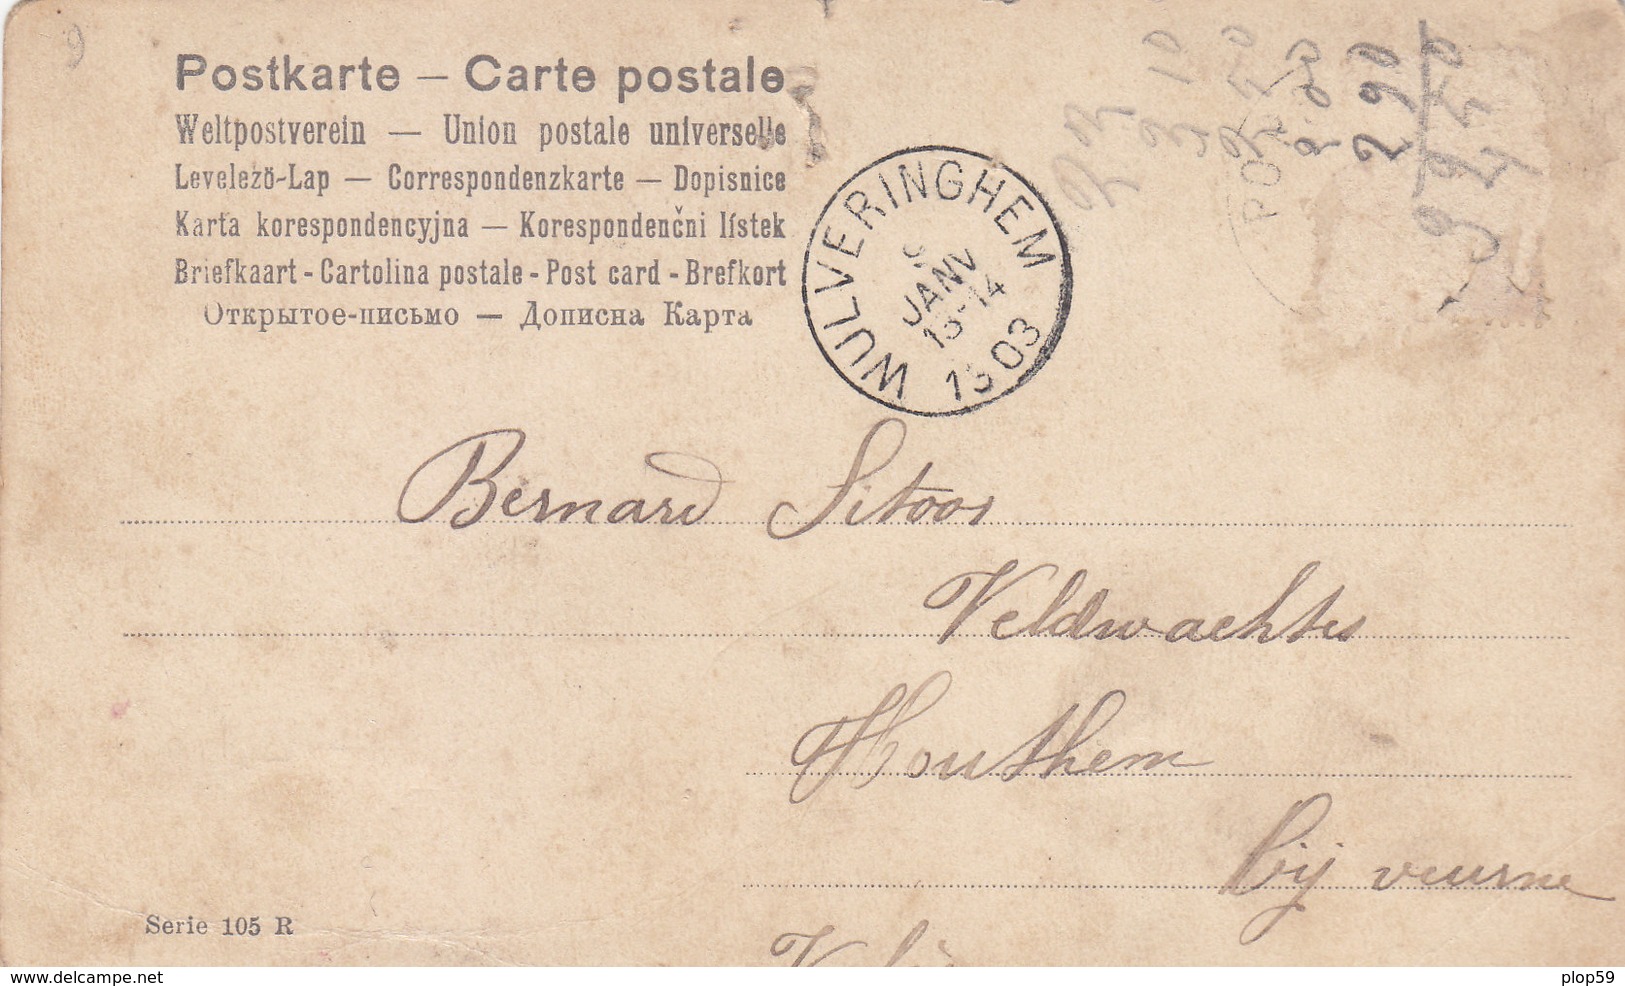 Postkarte – Carte postale
Weltpostverein — Union postale universelle
Levelező-Lap — Correspondenzkarte — Dopisnice
Karta korespondencyjna — Korespondenční lístek
Briefkaart - Cartolina postale - Post card - Brefkort
Открытое-письмо — Дописна Карта
WULVERINGHEM
JANV
13-14
1903
PO
2 90
Bernard Sitoor
Veldwachter
Houthem
bij veurne
Serie 105 R
www.delcampe.net
plop59